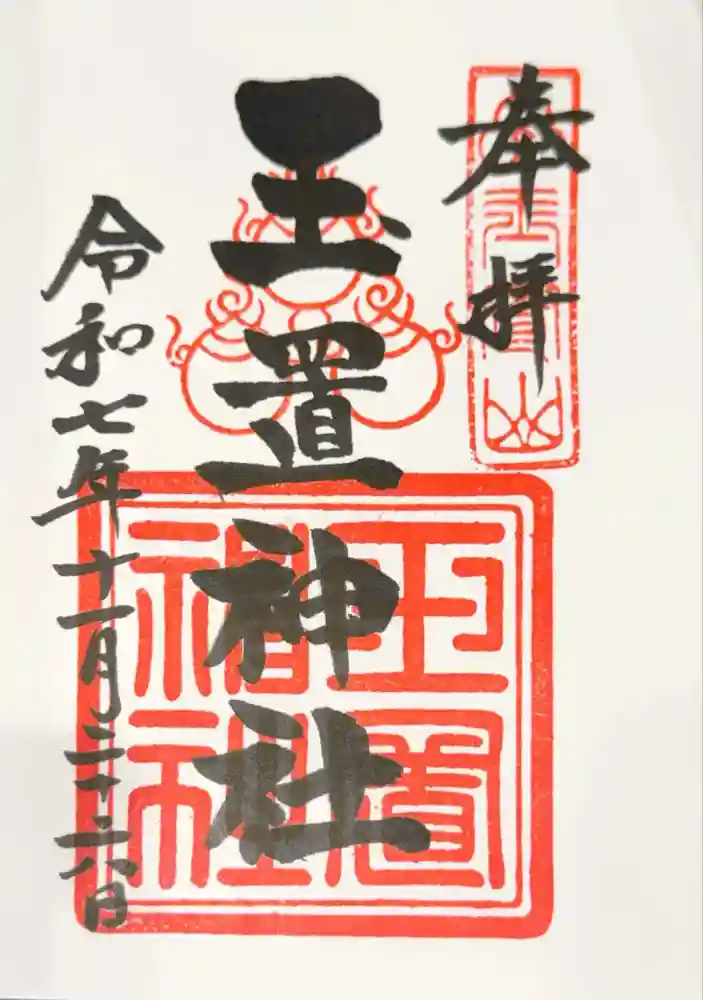 奉拝
玉置山
玉置神社
玉置
神社
令和七年十一月二十六日